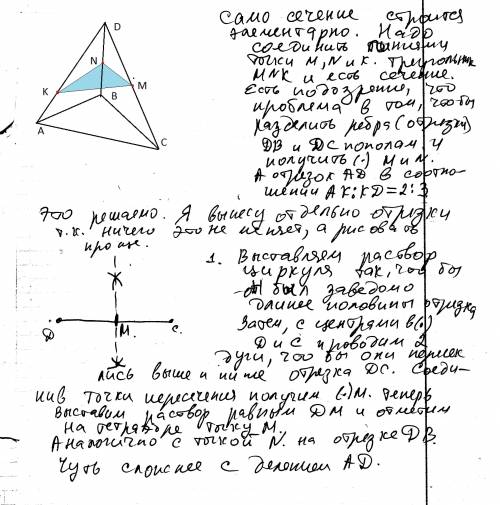 D
N
K
M
B
A
C
Само сечение строится
элементарно. Надо
соединить линиями
точки M, N и K. Треугольник
MNK и есть сечение.
Есть подозрение, что
проблема в том, чтобы
разделить ребра (отрезки)
DB и DC пополам, и
получить (·) M и N.
А отрезок AD в соотно-
шении AK:KD=2:3
Это решаемо. Я вынесу отдельно отрезки
т.к. ничего это не меняет, а рисовать
проще.
1. Выставляем раствор
циркуля так, что бы
он был заведомо
длинее половины отрезка
Затем, с центрами в (·)
D и C проводим 2
дуги, что бы они перек
D
M.
C.
лись выше и ниже отрезка DC. Соеди-
нив точки пересечения получим (·) M. Теперь
выставим раствор равным DM и отметим
на тетраэдре точку M.
Аналогично с точкой N. на отрезке DB.
Чуть сложнее с делением AD.